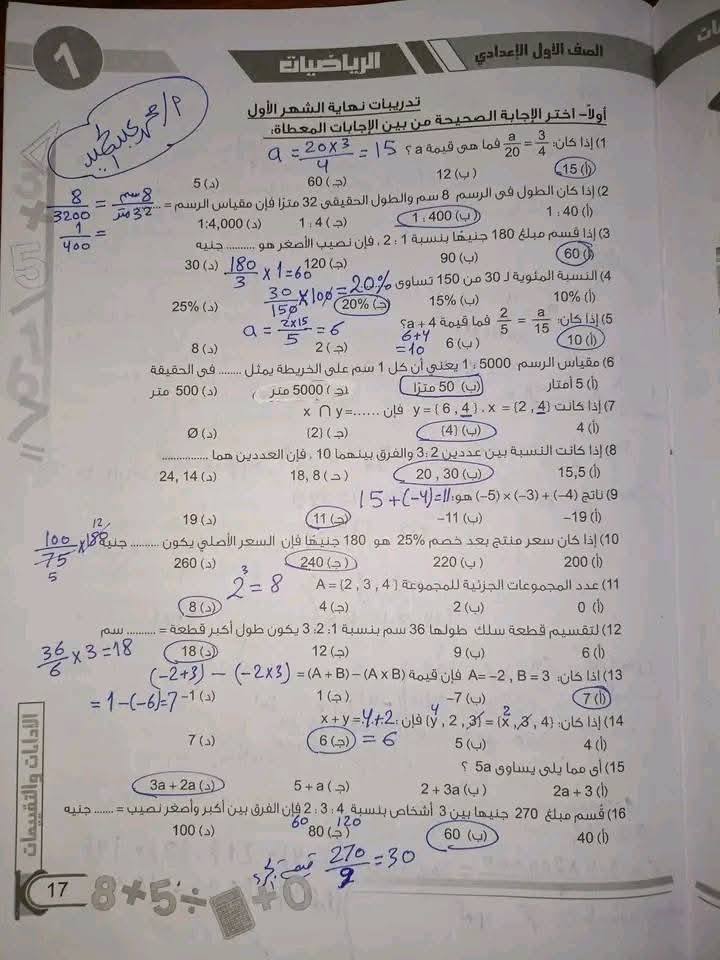 1
الرياضيات
الصف الأول الإعدادي
تدريبات نهاية الشهر الأول
أولاً- اختر الإجابة الصحيحة من بين الإجابات المعطاة:
1) إذا كان: a/20 = 3/4 فما هى قيمة a ؟ a = 20×3/4 = 15
(أ) 15 (ب) 12 (جـ) 60 (د) 5
2) إذا كان الطول فى الرسم 8 سم والطول الحقيقى 32 مترًا فإن مقياس الرسم = ... 8 سم/32 متر = 8/3200
(أ) 1:40 (ب) 1:400 (جـ) 1:4 (د) 1:4,000 = 1/400
3) إذا قسم مبلغ 180 جنيهًا بنسبة 1:2 ، فإن نصيب الأصغر هو .......... جنيه
(أ) 60 (ب) 90 (جـ) 120 (د) 30 180/3 × 1 = 60
4) النسبة المئوية لـ 30 من 150 تساوى 30/150 × 100 = 20%
(أ) 10% (ب) 15% (جـ) 20% (د) 25%
5) إذا كان: 2/5 = a/15 فما قيمة a + 4؟ a = 2×15/5 = 6
(أ) 10 (ب) 6 (جـ) 2 (د) 8 6+4 =10
6) مقياس الرسم 1:5000 يعني أن كل 1 سم على الخريطة يمثل ........ فى الحقيقة
(أ) 5 أمتار (ب) 50 مترًا (جـ) 5000 متر (د) 500 متر
7) إذا كانت x = {2 , 4} ، y = {6 , 4} فإن ......= x ∩ y
(أ) 4 (ب) {4} (جـ) {2} (د) Ø
8) إذا كانت النسبة بين عددين 3:2 والفرق بينهما 10 ، فإن العددين هما ...............
(أ) 15,5 (ب) 20 , 30 (جـ) 18, 8 (د) 24, 14
9) ناتج (–5) × (–3) + (–4) هو: 15+(-4)=11
(أ) –19 (ب) –11 (جـ) 11 (د) 19
10) إذا كان سعر منتج بعد خصم 25% هو 180 جنيهًا فإن السعر الأصلي يكون .......... جنيه 100/75 × 180 12 5
(أ) 200 (ب) 220 (جـ) 240 (د) 260
11) عدد المجموعات الجزئية للمجموعة A = {2 , 3 , 4} 2³ = 8
(أ) 0 (ب) 2 (جـ) 4 (د) 8
12) لتقسيم قطعة سلك طولها 36 سم بنسبة 3:2:1 يكون طول أكبر قطعة = .......... سم
(أ) 6 (ب) 9 (جـ) 12 (د) 18 36/6 × 3 = 18
13) اذا كان: A= –2 , B = 3 فإن قيمة (A + B) – (A x B) = (-2+3) - (-2×3)
(أ) 7 (ب) –7 (جـ) 1 (د) –1 = 1-(-6)=7
14) إذا كان: {x , 3 , 4} = {y , 2 , 3} فإن: x + y = 4+2
(أ) 4 (ب) 5 (جـ) 6 (د) 7 = 6
15) أى مما يلى يساوى 5a ؟
(أ) 2a + 3 (ب) 2 + 3a (جـ) 5 + a (د) 3a + 2a
16) قُسم مبلغ 270 جنيها بين 3 أشخاص بنسبة 4 : 3 : 2 فإن الفرق بين أكبر وأصغر نصيب = ....... جنيه
60 120
(أ) 40 (ب) 60 (جـ) 80 (د) 100
270/9 = 30
الأداءات والتقييمات
17
8+5÷ +0